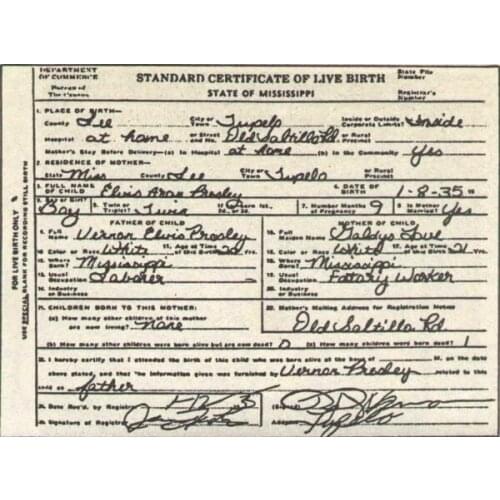 DEPARTMENT OF COMMERCE
Bureau of The Census
STANDARD CERTIFICATE OF LIVE BIRTH
STATE OF MISSISSIPPI
State File Number
Registrar's Number
FOR LIVE BIRTH ONLY
USE SPECIAL BLANK FOR RECORDING STILL BIRTH
1. PLACE OF BIRTH—
County Lee City or Town Tupelo Inside or Outside Corporate Limits? Inside
Hospital at home Street and No. Old Saltillo Rd or Rural Precinct
Mother's Stay Before Delivery—(a) In Hospital at home (b) In the Community Yes
2. RESIDENCE OF MOTHER—
State Miss County Lee City or Town Tupelo or Rural Precinct
3. FULL NAME OF CHILD Elvis Aron Presley 4. DATE OF BIRTH 1-8-35
Boy 5. Twin or Triplet? Twin 7. Number Months of Pregnancy 9 8. Is Mother Married? Yes
FATHER OF CHILD
9. Full Name Vernon Elvis Presley
10. Color or Race White 11. Age at Time of Birth Yrs.
12. Where Born? Mississippi
13. Usual Occupation Laborer
14. Industry or Business
MOTHER OF CHILD
15. Full Maiden Name Gladys Love
Color or Race White 17. Age at Time of Birth 21 Yrs.
Where Born? Mississippi
Usual Occupation Factory Worker
20. Industry or Business
21. CHILDREN BORN TO THIS MOTHER:
(a) How many other children of this mother are now living? none
22. Mother's Mailing Address for Registration Notice
Old Saltillo Rd
(b) How many other children were born alive but are now dead? 0 (c) How many children were born dead? 1
I hereby certify that I attended the birth of this child who was born alive at the hour of M. on the date
above stated, and that the information given was furnished by Vernon Presley related to this
child as father
24. Date Rec'd. by Registrar
Signature of Registrar
(Signed)
Address Tupelo